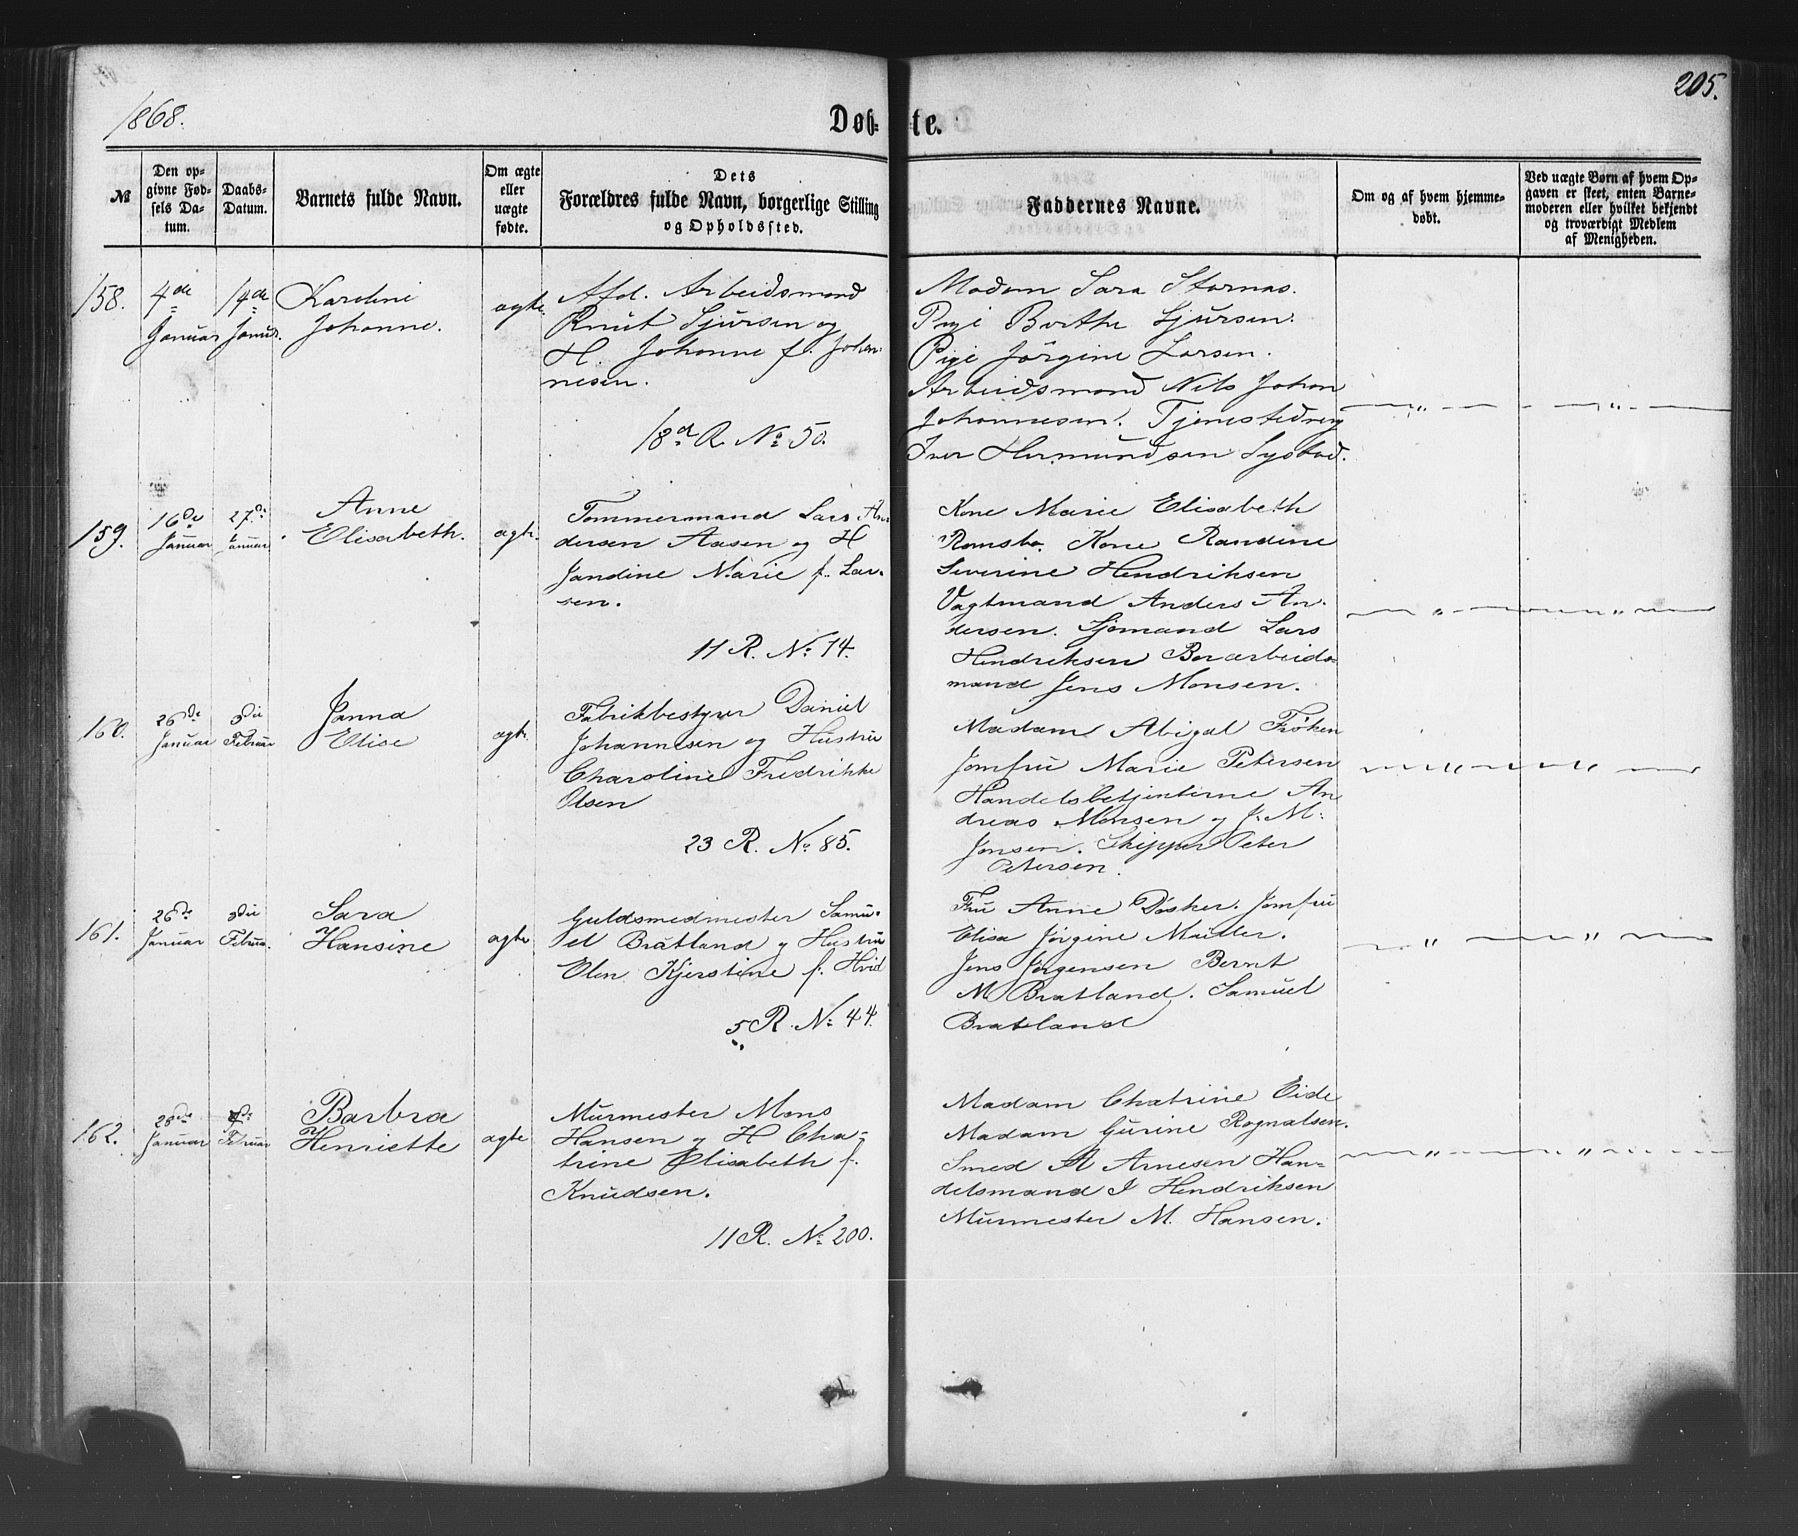 1868.
Døbte.
205.
№
Den opgivne Fødsels Datum.
Daabs-Datum.
Barnets fulde Navn.
Om ægte eller uægte fødte.
Dets Forældres fulde Navn, borgerlige Stilling og Opholdssted.
Faddernes Navne.
Om og af hvem hjemmedøbt.
Ved uægte Børn af hvem Opgaven er skeet, enten Barnemoderen eller hvilket bekjendt og troværdigt Medlem af Menigheden.
158.
4de Januar
14de Januar
Karoline
Johanne.
ægte
Afd. Arbeidsmand
Knut Sjursen og
H. Johanne f. Johan-
nesen.
18d R. No 50.
Madam Sara Stornas.
Pige Berthe Sjursen.
Pige Jörgine Larsen.
Arbeidsmand Nils Johan
Johannesen. Tjenestedreng
Iver Hermundsen Systad.
159.
16de Januar
27de Januar
Anne
Elisabeth.
ægte
Tømmermand Lars An-
dersen Aasen og H
Jandine Marie f. Lar-
sen.
11 R. No 74.
Kone Marie Elisabeth
Romsbo. Kone Randine
Severine Hendriksen
Vagtmand Anders An-
dersen. Sjömand Lars
Hendriksen Borarbeids-
mand Jens Monsen.
160.
26de Januar
3die Februar
Janna
Elise
ægte
Fabrikbestyrer Daniel
Johannesen og Hustru
Charoline Fredrikke
Olsen
23 R. No 85.
Madam Abigal Frøken
Jomfru Marie Petersen
Handelsbetjenterne An
dreas Monsen og J. M.
Jonsen. Skipper Peter
Petersen.
161.
26de Januar
3die Februar
Sara
Hansine
ægte
Guldsmedmester Samu-
el Bratland og Hustru
Elen Kjerstine f. Hvid
5 R. No 44.
Fru Anne Døsker. Jomfru
Elisa Jörgine Müller.
Jens Jørgensen Bernt
M Bratland. Samuel
Bratland
162.
28de Januar
Februar
Barbra
Henriette
ægte
Murmester Mons
Hansen og H Cha-
trine Elisabeth f.
Knudsen.
11 R. No 200.
Madam Chatrine Eide
Madam Gurine Rognalsen.
Smed A Arnesen Han-
delsmand J Hendriksen
Murmester M. Hansen.